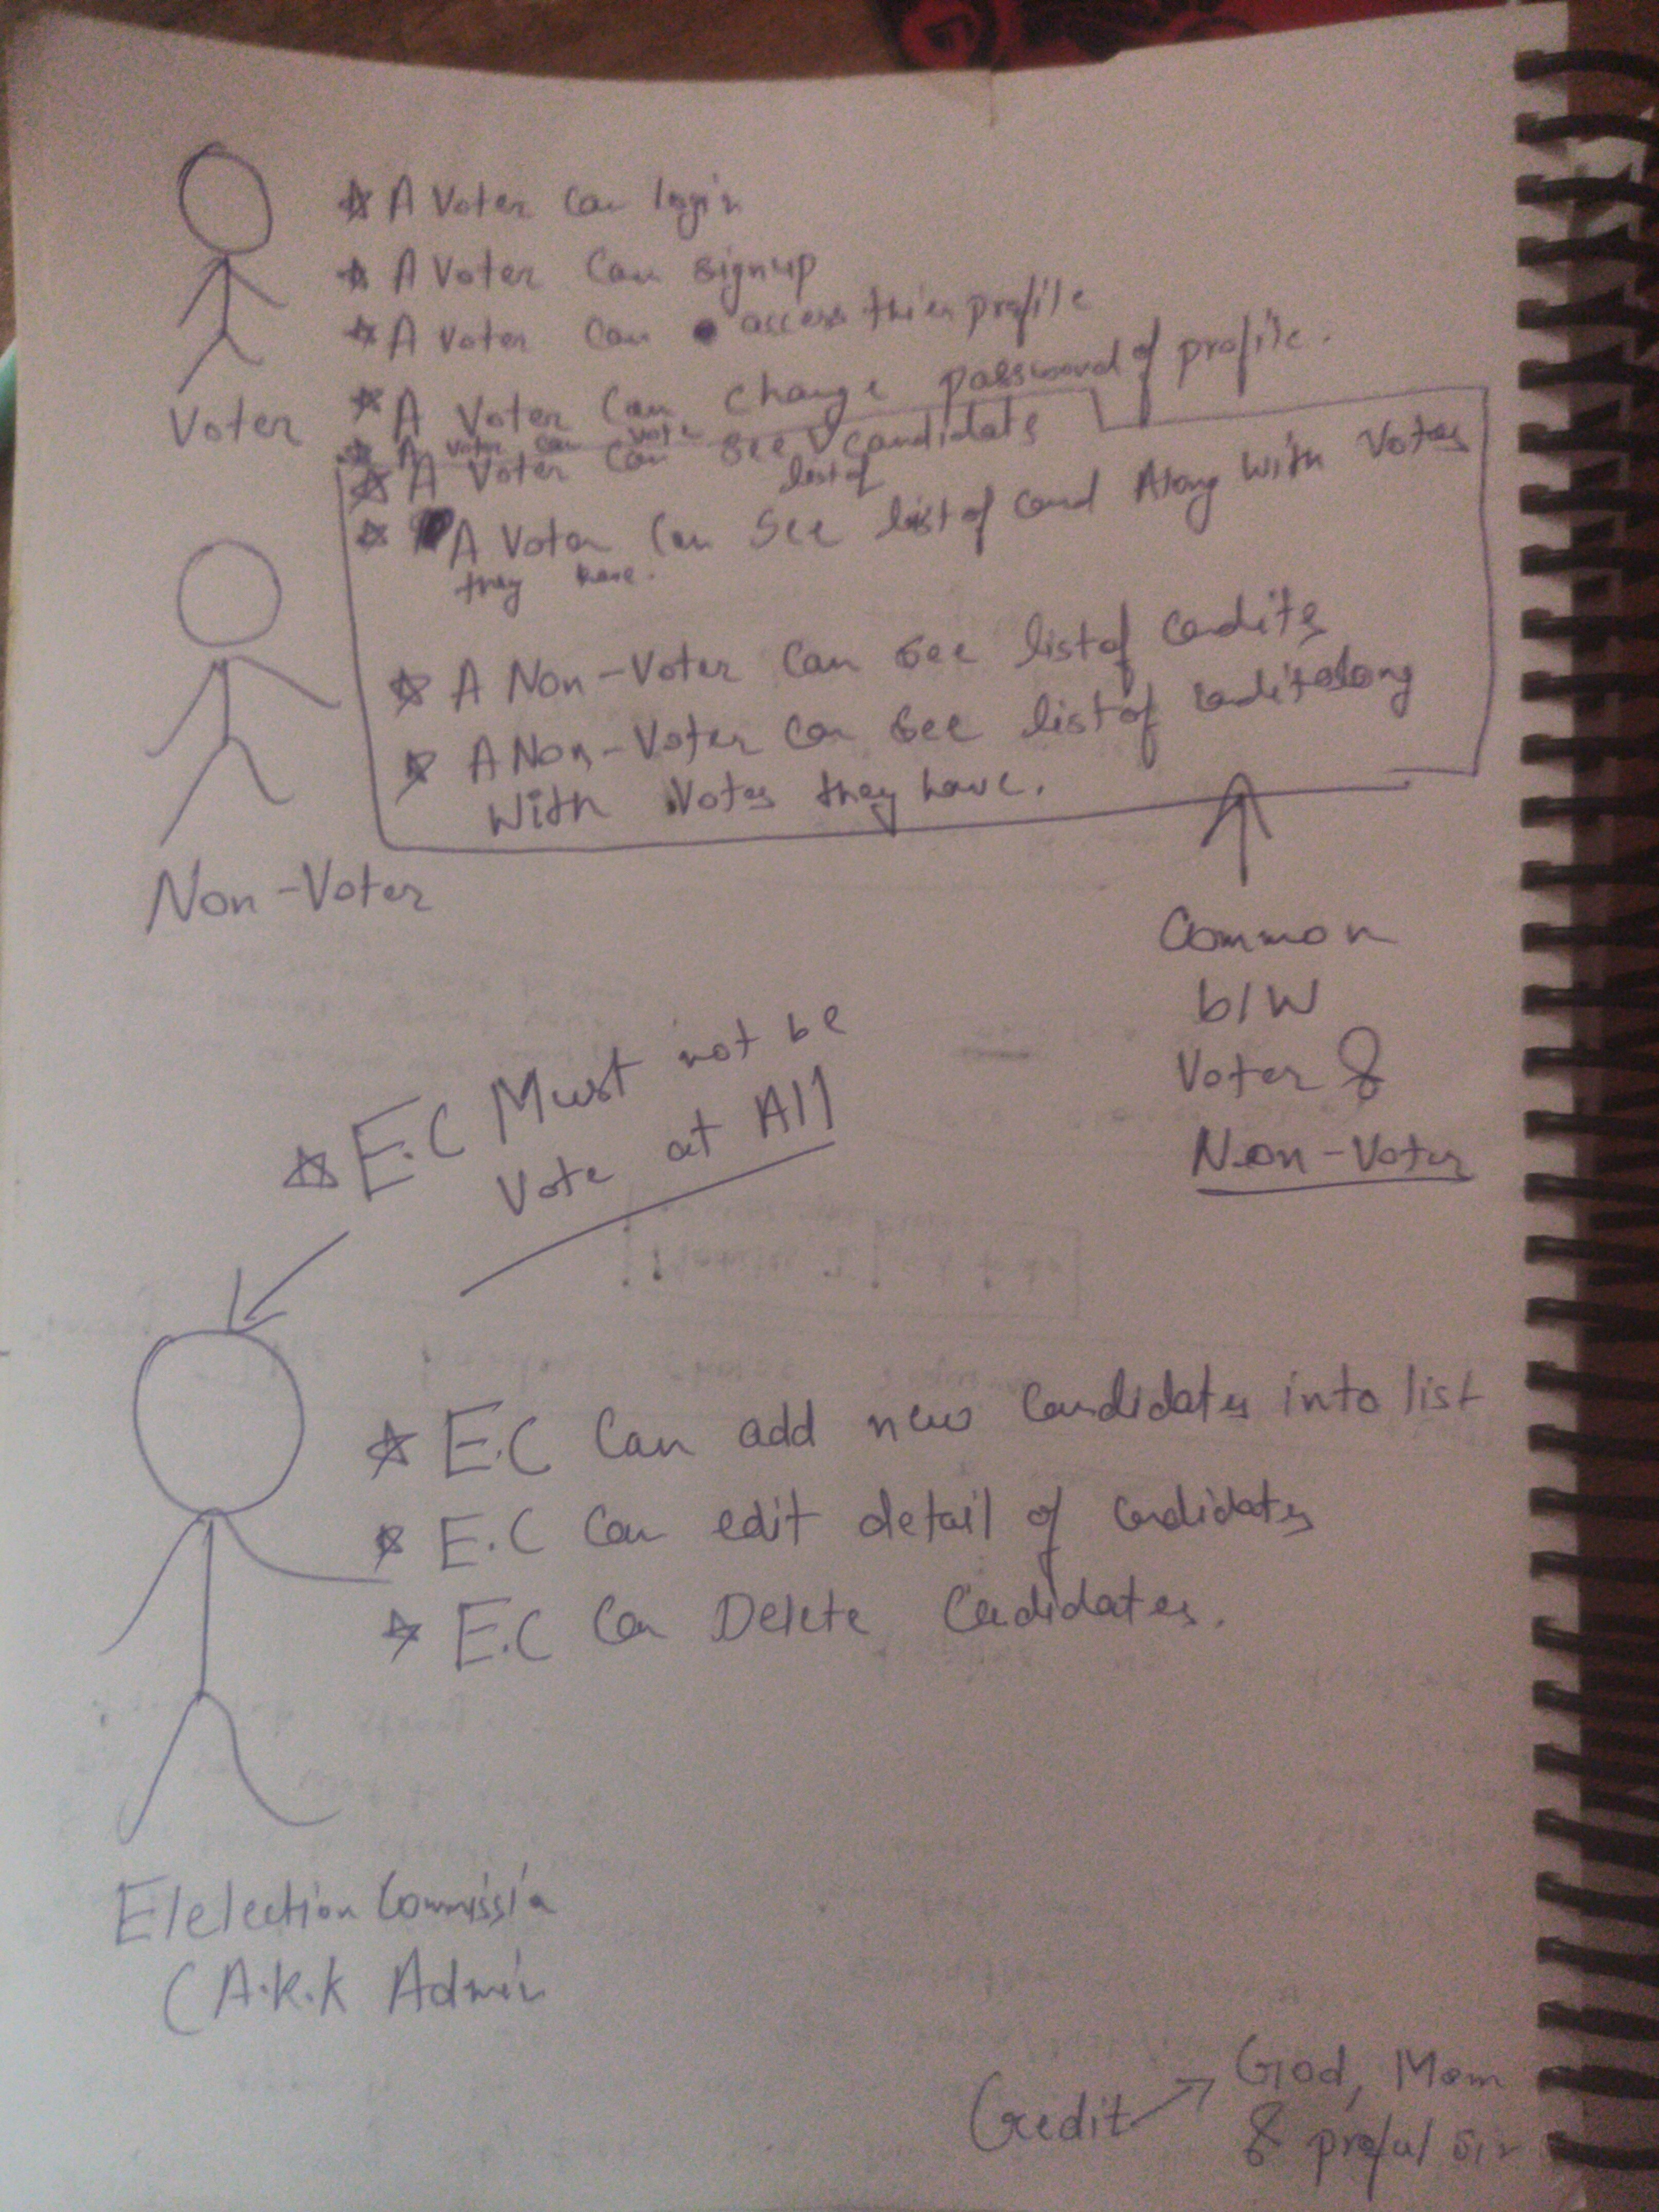 ☆ A Voter can login
☆ A Voter can signup
☆ A Voter can access thier profile
☆ A Voter can change password of profile.
☆ A voter can vote
☆ A Voter can see list of candidate
☆ A Voter can see list of cand Along with Votes
they have.
Voter
☆ A Non-Voter can see list of candits
☆ A Non-Voter can see list of candit along
with Votes they have.
Non-Voter
Common
b/w
Voter &
Non-Voter
☆ E.C Must not be
Vote at All
☆ E.C can add new candidates into list
☆ E.C can edit detail of candidates
☆ E.C can Delete Cadidates.
Elelection Commissin
(A.K.K Admin
Credit → God, Mom
& praful sir